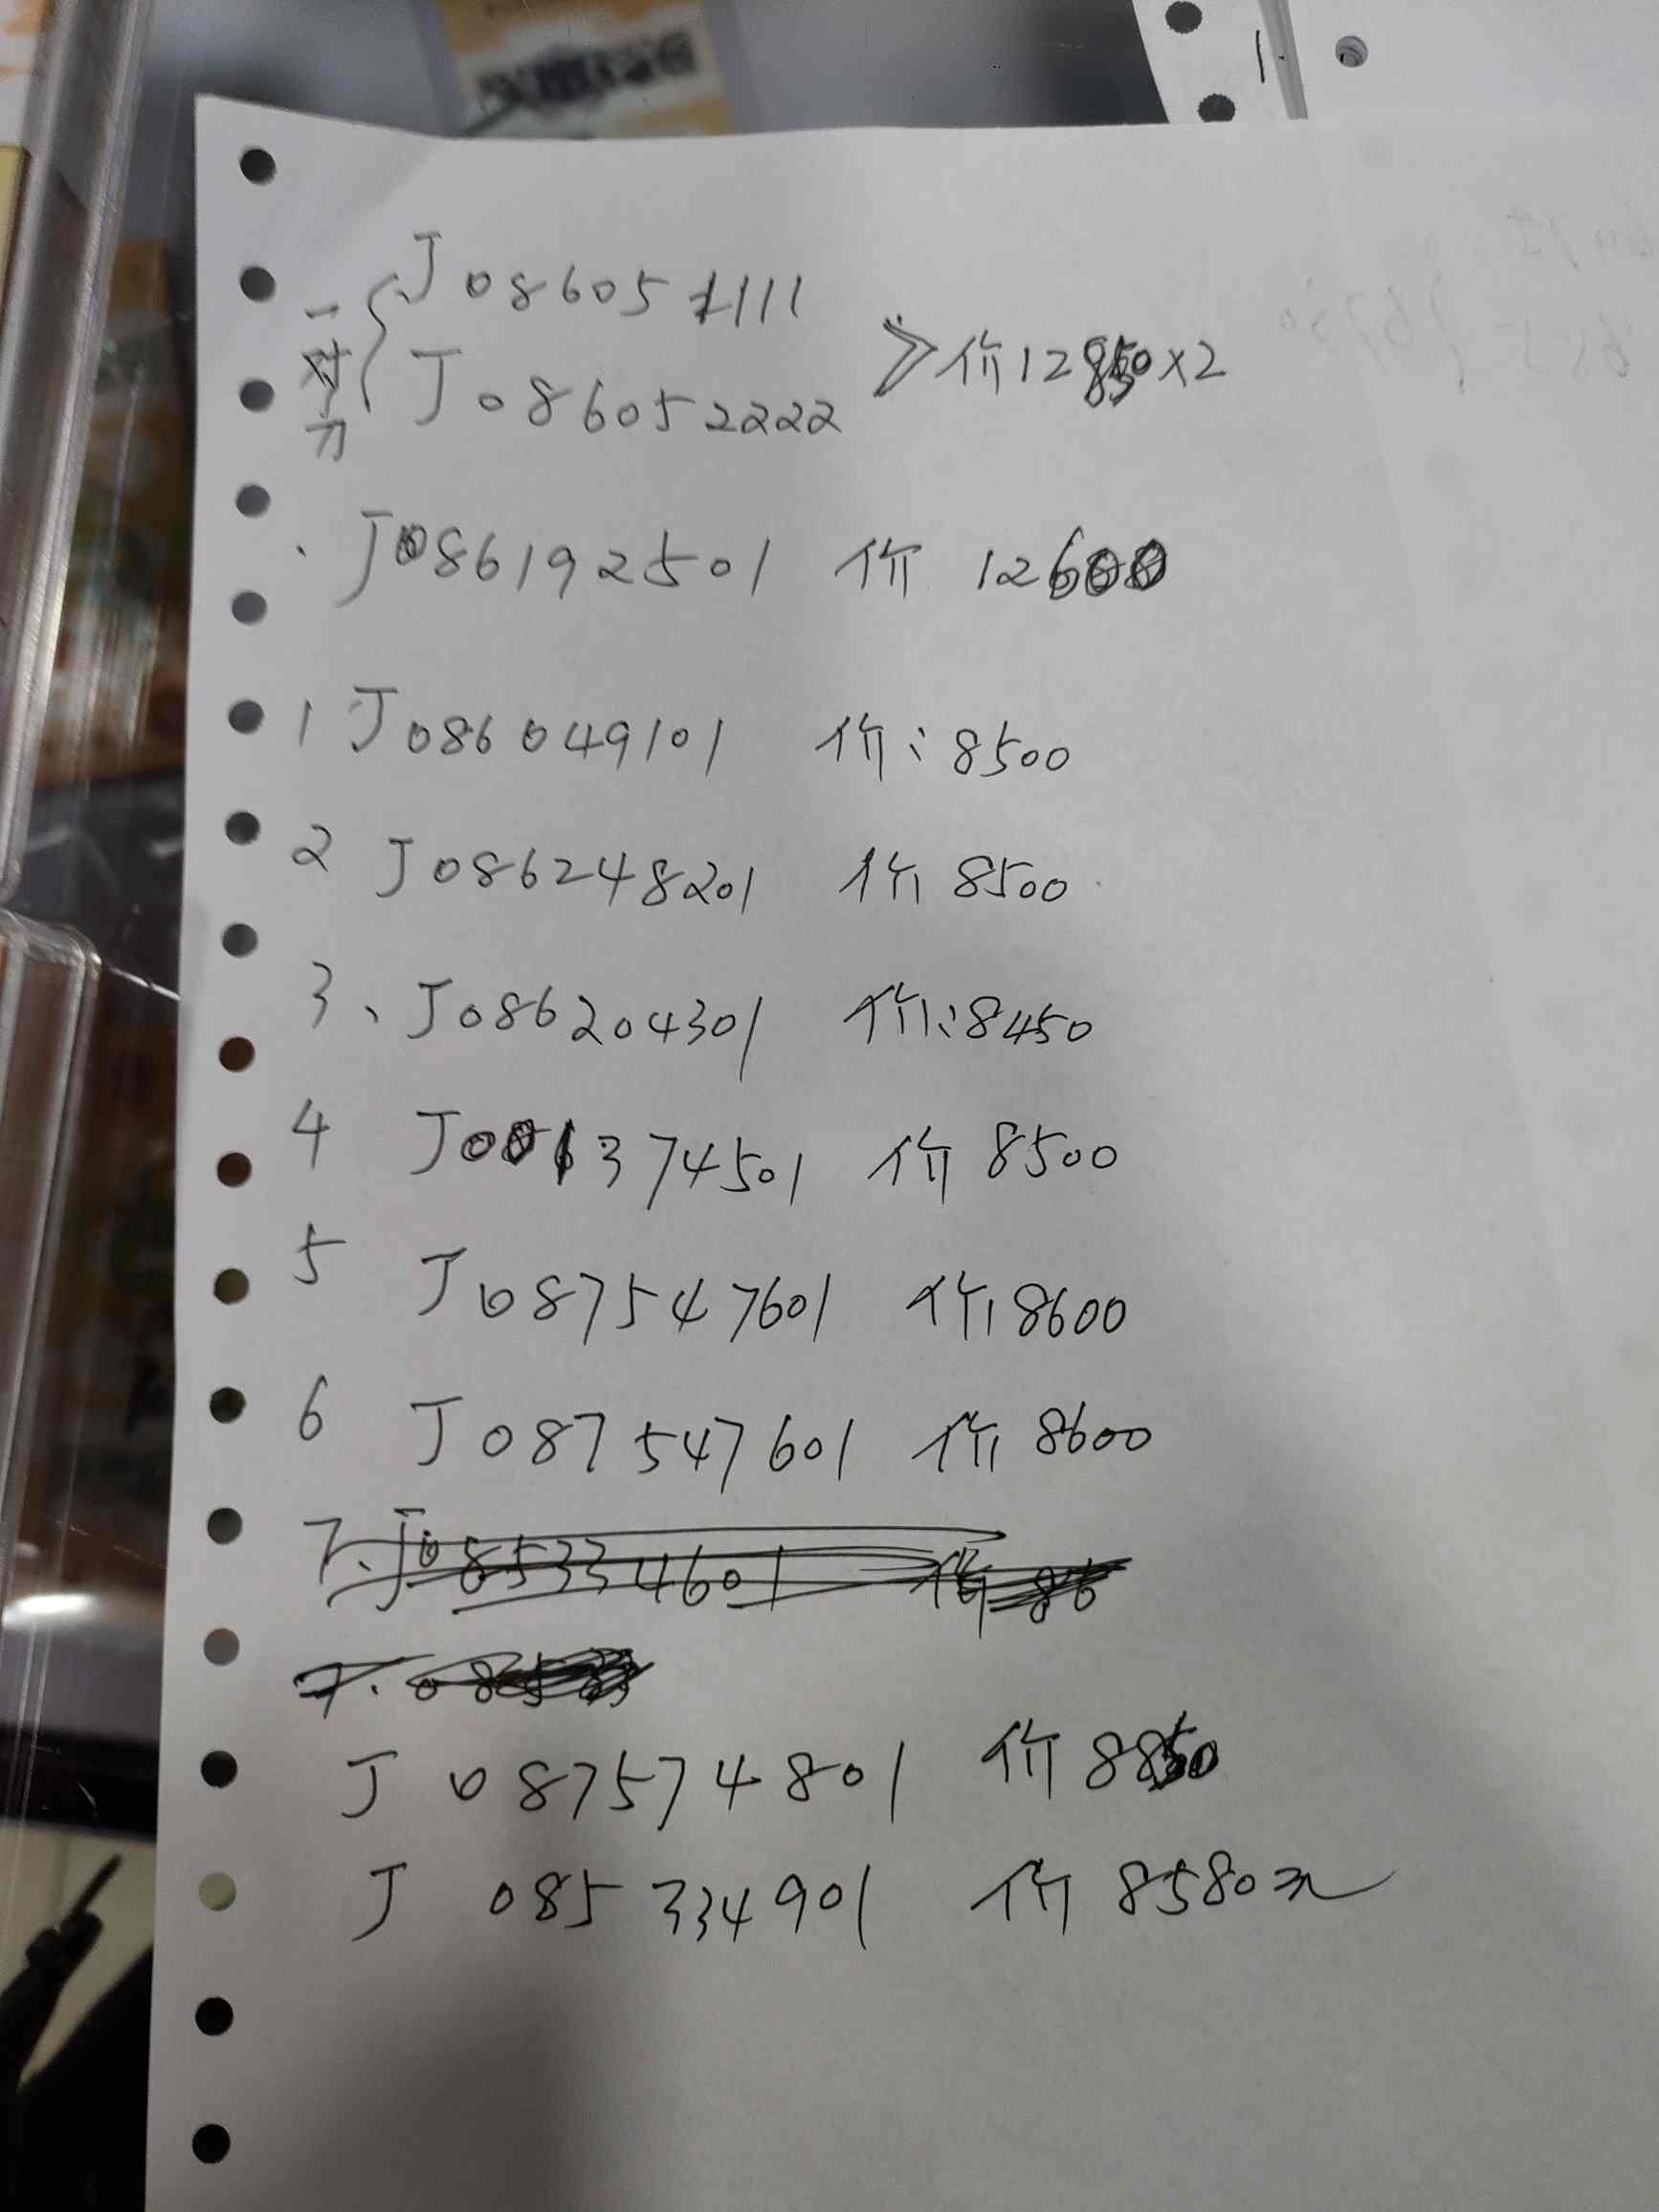 一对刀
J086051111
J086052222
价12850x2
J086192501 价 12600
1 J086049101 价:8500
2 J086248201 价8500
3、J086204301 价:8450
4 J086374501 价 8500
5 J087547601 价8600
6 J087547601 价 8600
7. J085334601 价 86
7. 085
J 087574801 价8850
J 085334901 价 8580元